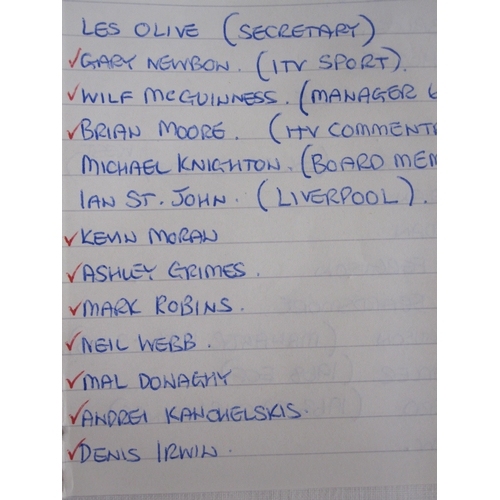 LES OLIVE (SECRETARY)
✓GARY NEWBON. (ITV SPORT).
✓WILF MCGUINNESS. (MANAGER
✓BRIAN MOORE. (ITV COMMENT
MICHAEL KNIGHTON. (BOARD MEM
IAN ST. JOHN. (LIVERPOOL).
✓KEVIN MORAN
✓ASHLEY GRIMES.
✓MARK ROBINS.
✓NEIL WEBB.
✓MAL DONAGHY
✓ANDREI KANCHELSKIS.
✓DENIS IRWIN.